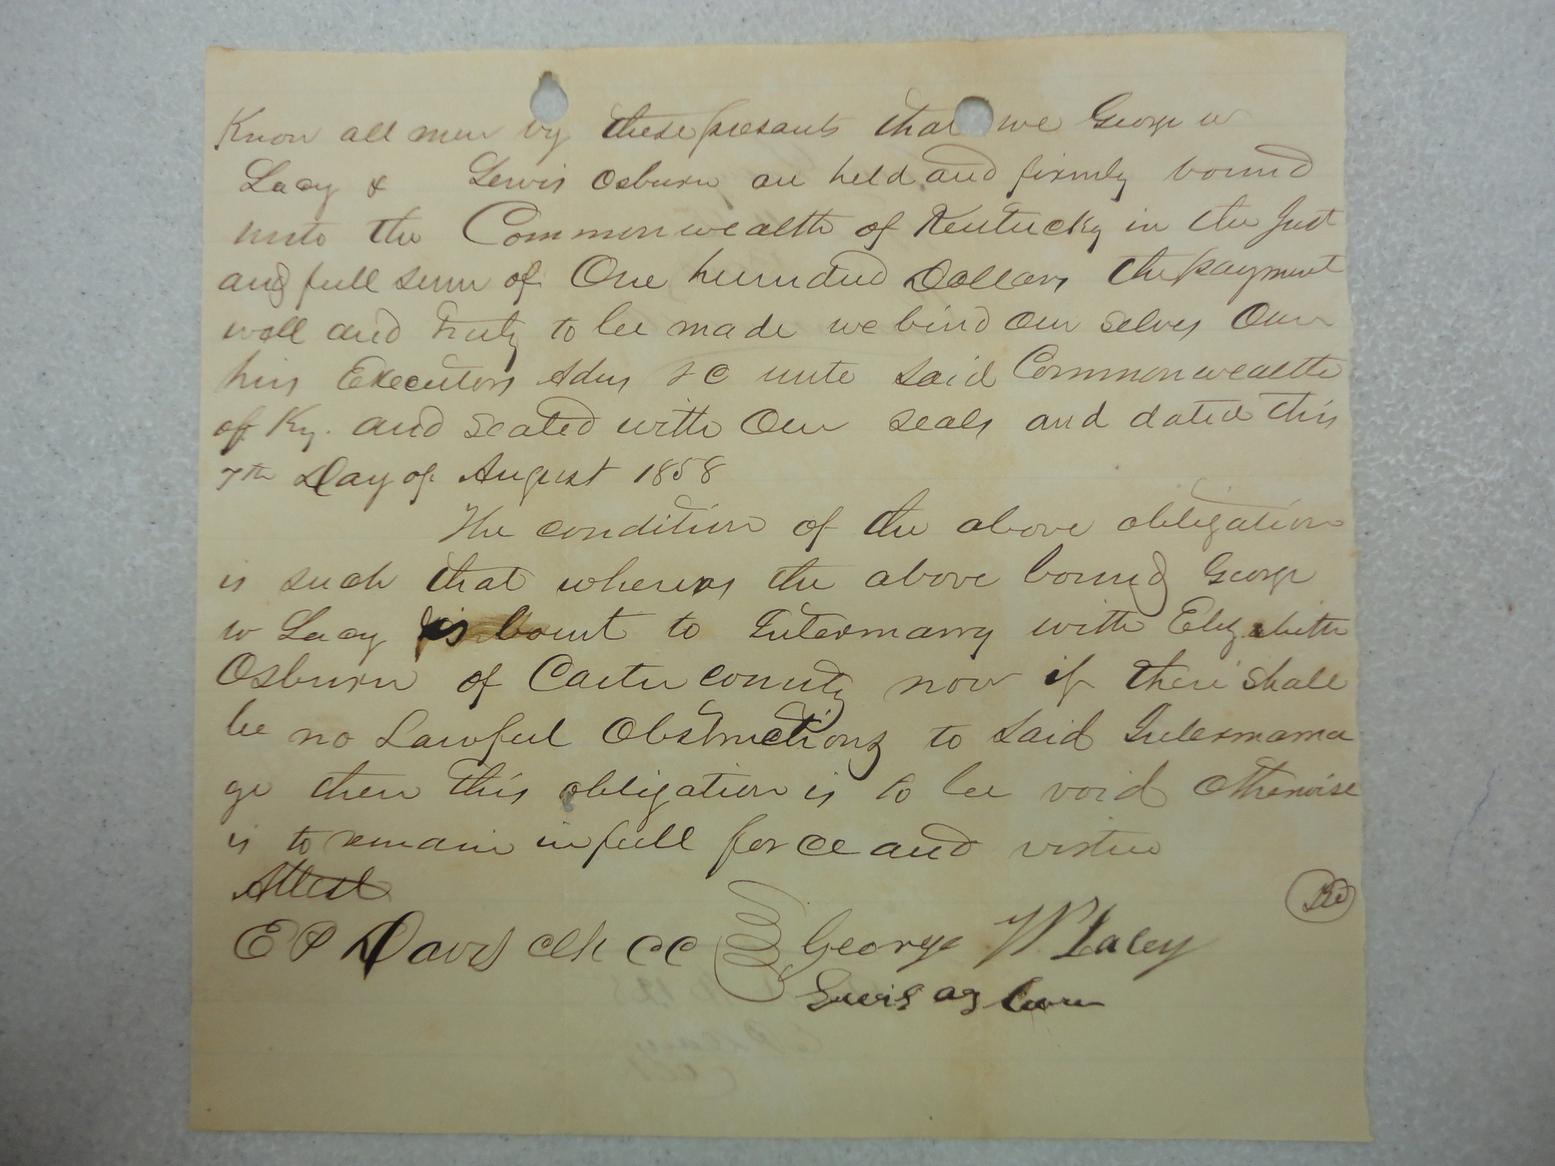 Know all men by these presants that we George w
Lacy & Lewis Osburn are held and firmly bound
unto the Commonwealth of Kentucky in the Just
and full sum of One hundred Dollars the payment
well and truly to be made we bind our selves Our
hirs Executors Adms &C unto said Commonwealth
of Ky. and sealed with Our seals and dated this
7th Day of August 1858
The condition of the above obligation
is such that whereas the above bound George
w Lacy is bout to Intermarry with Elizabeth
Osburn of Carter county now if there shall
be no Lawful Obstructions to said Intermarria
ge then this obligation is to be void otherwise
is to remain in full force and virtue
Attest
E P Davis Clk CC George W Lacey
Lewis as burn